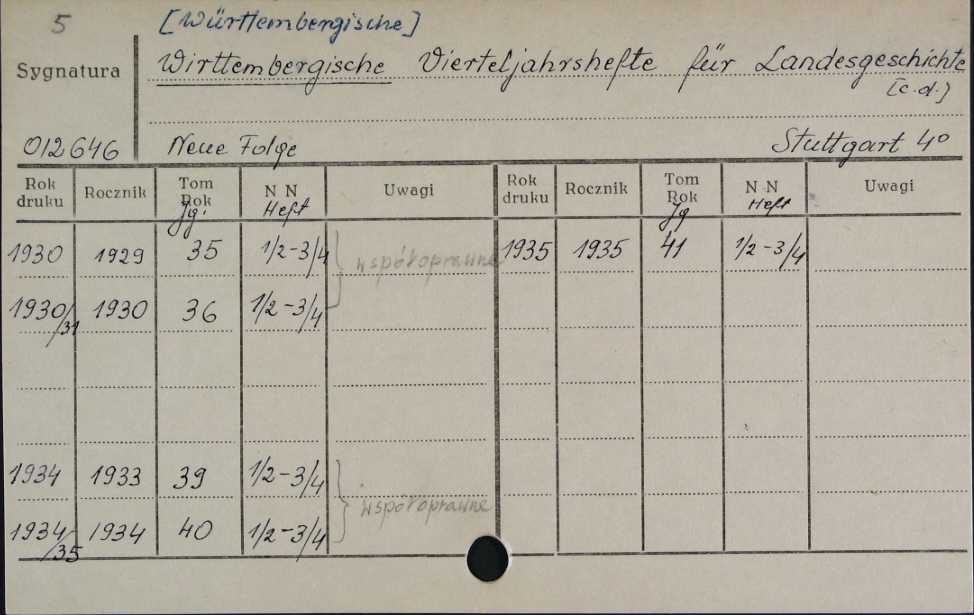 5 [Württembergische]
Sygnatura Wirttembergische Vierteljahrshefte für Landesgeschichte
[c.d.]
012646 Neue Folge Stuttgart 4°
Rok druku Rocznik Tom Rok Jg. N N Heft Uwagi Rok druku Rocznik Tom Rok Jg N N Heft Uwagi
1930 1929 35 1/2-3/4 współoprawne 1935 1935 41 1/2-3/4
1930/31 1930 36 1/2-3/4
1934 1933 39 1/2-3/4 współoprawne
1934/35 1934 40 1/2-3/4